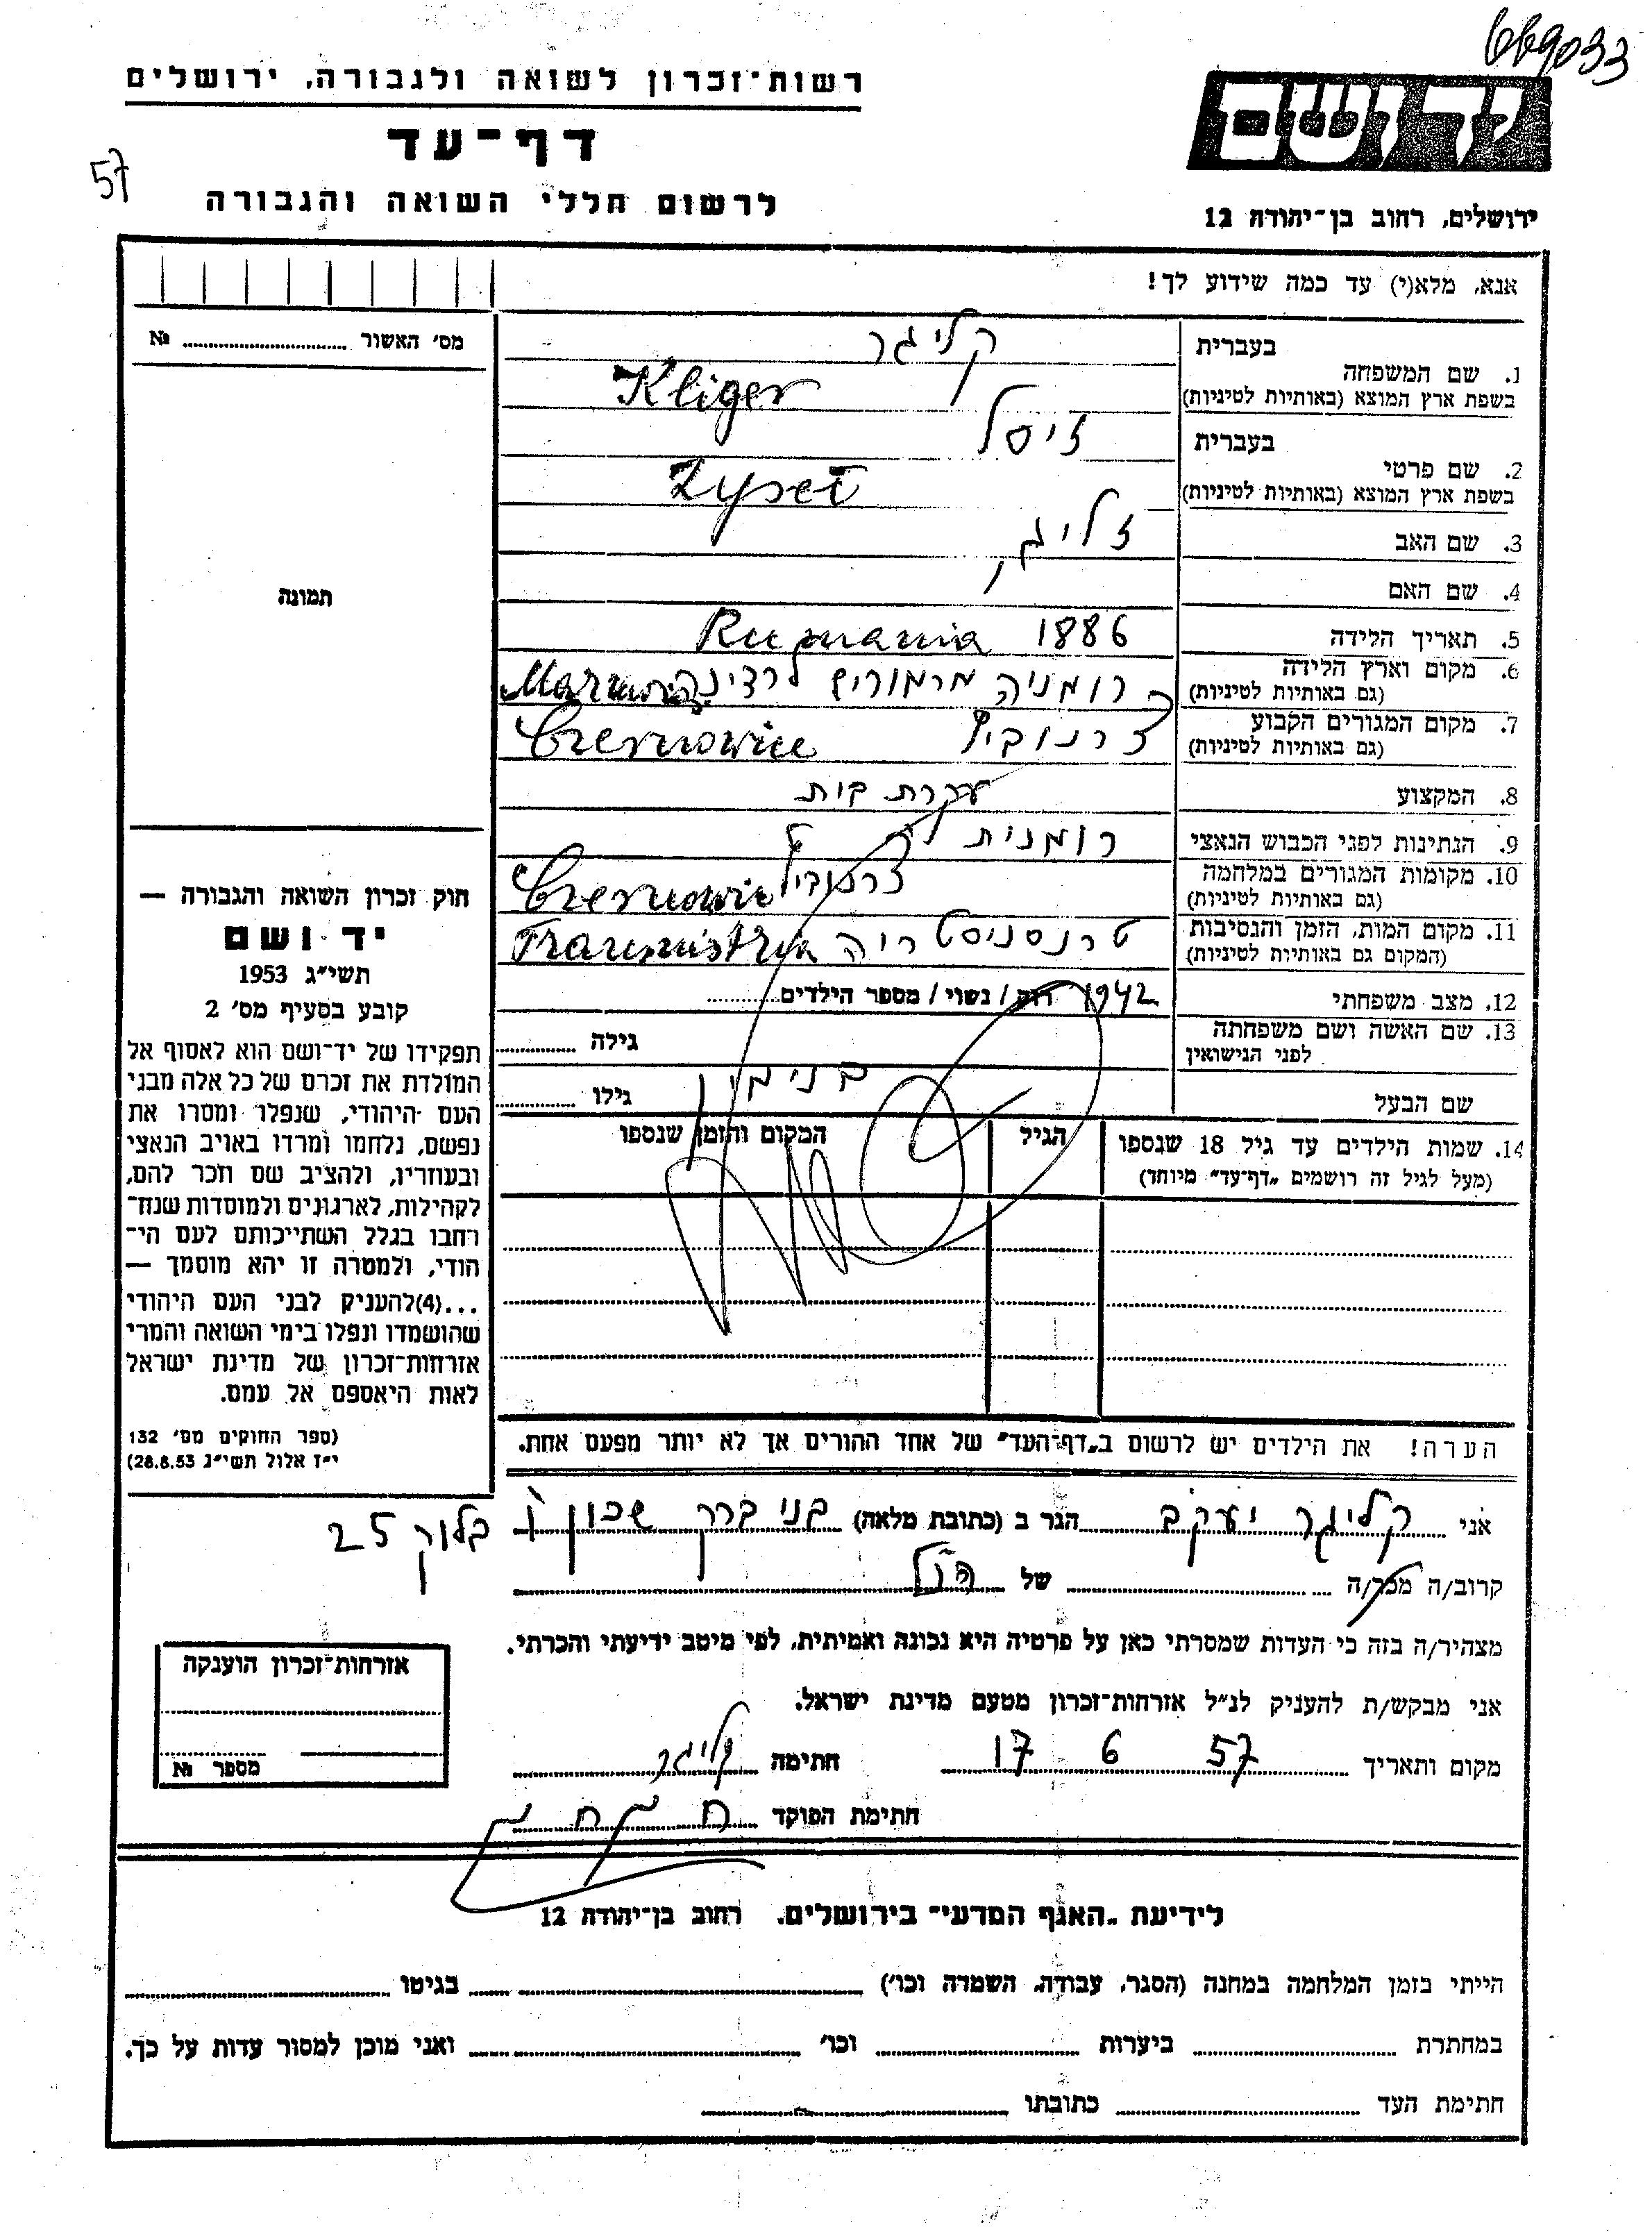 669033
רשות-זכרון לשואה ולגבורה, ירושלים
דף-עד
57
לרשום חללי השואה והגבורה
יד ושם
ירושלים, רחוב בן-יהודה 12
אנא, מלא(י) עד כמה שידוע לך!
מס׳ האשור № 
תמונה
בעברית קליגר
1. שם המשפחה
בשפת ארץ המוצא (באותיות לטיניות) Kliger
בעברית זיסל
2. שם פרטי
בשפת ארץ המוצא (באותיות לטיניות) Zysel
3. שם האב זליג
4. שם האם
5. תאריך הלידה 1886 Rumania
6. מקום וארץ הלידה
(גם באותיות לטיניות) רומניה מרמורש
7. מקום המגורים הקבוע
(גם באותיות לטיניות) צרנוביץ Czernowice
8. המקצוע עקרת בית
9. הנתינות לפני הכבוש הנאצי רומנית
10. מקומות המגורים במלחמה
(גם באותיות לטיניות) צרנוביץ Czernowic
11. מקום המות, הזמן והנסיבות
(המקום גם באותיות לטיניות) טרנסניסטריה Transnistria
12. מצב משפחתי 1942 רוק / נשוי / מספר הילדים
13. שם האשה ושם משפחתה
לפני הנישואין גילה
שם הבעל בנימין גילו
14. שמות הילדים עד גיל 18 שנספו הגיל המקום והזמן שנספו
(מעל לגיל זה רושמים "דף-עד" מיוחד)
הערה! את הילדים יש לרשום ב"דף-העד" של אחד ההורים אך לא יותר מפעם אחת.
חוק זכרון השואה והגבורה —
יד ושם
תשי״ג 1953
קובע בסעיף מס׳ 2
תפקידו של יד-ושם הוא לאסוף אל
המולדת את זכרם של כל אלה מבני
העם היהודי, שנפלו ומסרו את
נפשם, נלחמו ומרדו באויב הנאצי
ובעוזריו, ולהציב שם וזכר להם,
לקהילות, לארגונים ולמוסדות שנח-
רבו בגלל השתייכותם לעם הי-
הודי, ולמטרה זו יהא מוסמך —
...(4)להעניק לבני העם היהודי
שהושמדו ונפלו בימי השואה והמרי
אזרחות-זכרון של מדינת ישראל
לאות היאספם אל עמם.
(ספר החוקים מס׳ 132
י״ז אלול תשי״ג 28.8.53)
אני קליגר יעקב הגר ב (כתובת מלאה) בני ברק שכון ו׳ בלוק 25
קרוב/ה מכר/ה של הנ״ל
מצהיר/ה בזה כי העדות שמסרתי כאן על פרטיה היא נכונה ואמיתית, לפי מיטב ידיעתי והכרתי.
אני מבקש/ת להעניק לנ״ל אזרחות-זכרון מטעם מדינת ישראל.
מקום ותאריך 17 6 57 חתימה קליגר
חתימת הפוקד
אזרחות-זכרון הוענקה
מספר №
לידיעת "האגף המדעי" בירושלים, רחוב בן-יהודה 12
הייתי בזמן המלחמה במחנה (הסגר, עבודה, השמדה וכו׳) בגיטו
במחתרת ביערות וכו׳ ואני מוכן למסור עדות על כך.
חתימת העד כתובתו